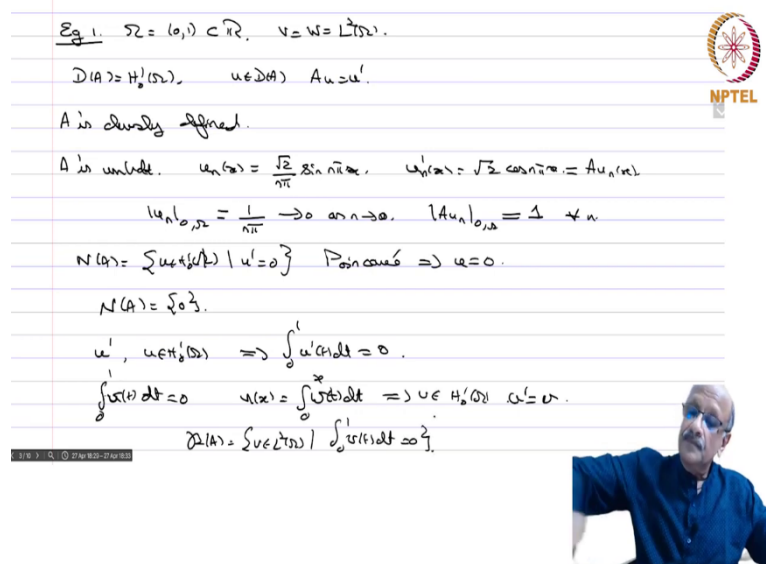 Eg 1. Ω = (0,1) ⊂ ℝ. V = W = L²(Ω).
D(A) = H₀¹(Ω). u ∈ D(A) Au = u'.
A is densely defined.
A is unbdd. uₙ(x) = √2/nπ sin nπx. uₙ'(x) = √2 cos nπx = Auₙ(x).
|uₙ|₀,Ω = 1/nπ → 0 as n→∞. |Auₙ|₀,Ω = 1 ∀ n
N(A) = {u ∈ H₀¹(Ω) | u' = 0} Poincaré ⇒ u = 0.
N(A) = {0}.
u', u ∈ H₀¹(Ω) ⇒ ∫₀¹ u'(t) dt = 0.
∫₀¹ v(t) dt = 0 u(x) = ∫₀ˣ v(t) dt ⇒ u ∈ H₀¹(Ω) u' = v.
R(A) = {v ∈ L²(Ω) | ∫₀¹ v(t) dt = 0}.
NPTEL
3/10 27 Apr 18:23–27 Apr 18:33